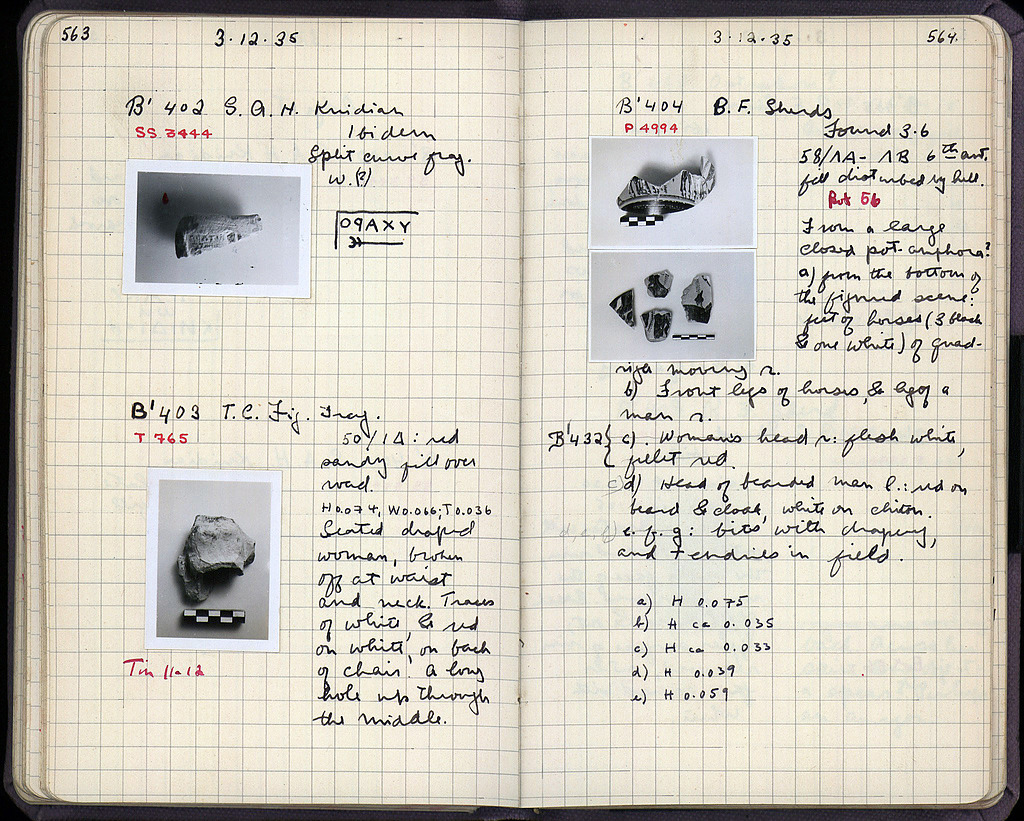 563
3·12·35
B' 402 S.A.H. Knidian
SS 3444
Ibidem
Split curve frag.
w.(?)
09AXY
B' 403 T.C. Fig. Frag.
T 765
50/1Δ: red
sandy fill over
road.
H 0.074, W 0.066; T 0.036
Seated draped
woman, broken
off at waist
and neck. Traces
of white, & red
on white, on back
of chair. A long
hole up through
the middle.
Tin 11-12
3·12·35
564.
B' 404 B.F. Sherds
P 4994
Found 3.6
58/ΛA - ΛB 6th
fill disturbed by
56
From a large
closed pot - amphora?
a) from the bottom of
the figured scene:
feet of horses (3 black
& one white) of quad-
riga moving r.
b) Front legs of horses, & leg of a
man r.
B' 432 { c). Woman's head r: flesh white,
fillet red.
d) Head of bearded man l.: red on
beard & cloak, white on chiton.
e. f. g: bits with drapery,
and tendrils in field.
a) H 0.075
b) H ca 0.035
c) H ca 0.033
d) H 0.039
e) H 0.059